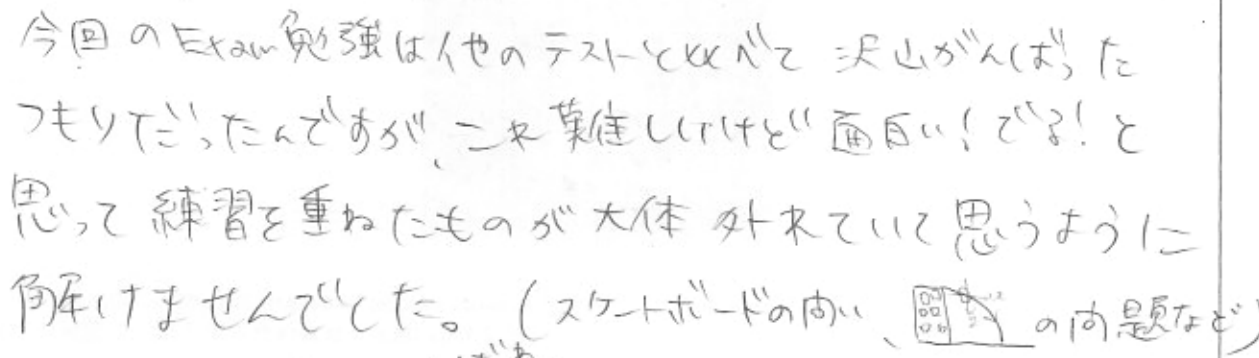 今回のExam勉強は他のテストと比べて沢山がんばった
つもりだったんですが、これ難しいけど面白い！でる！と
思って練習を重ねたものが大体外れていて思うように
解けませんでした。(スケートボードの問い、の問題など)